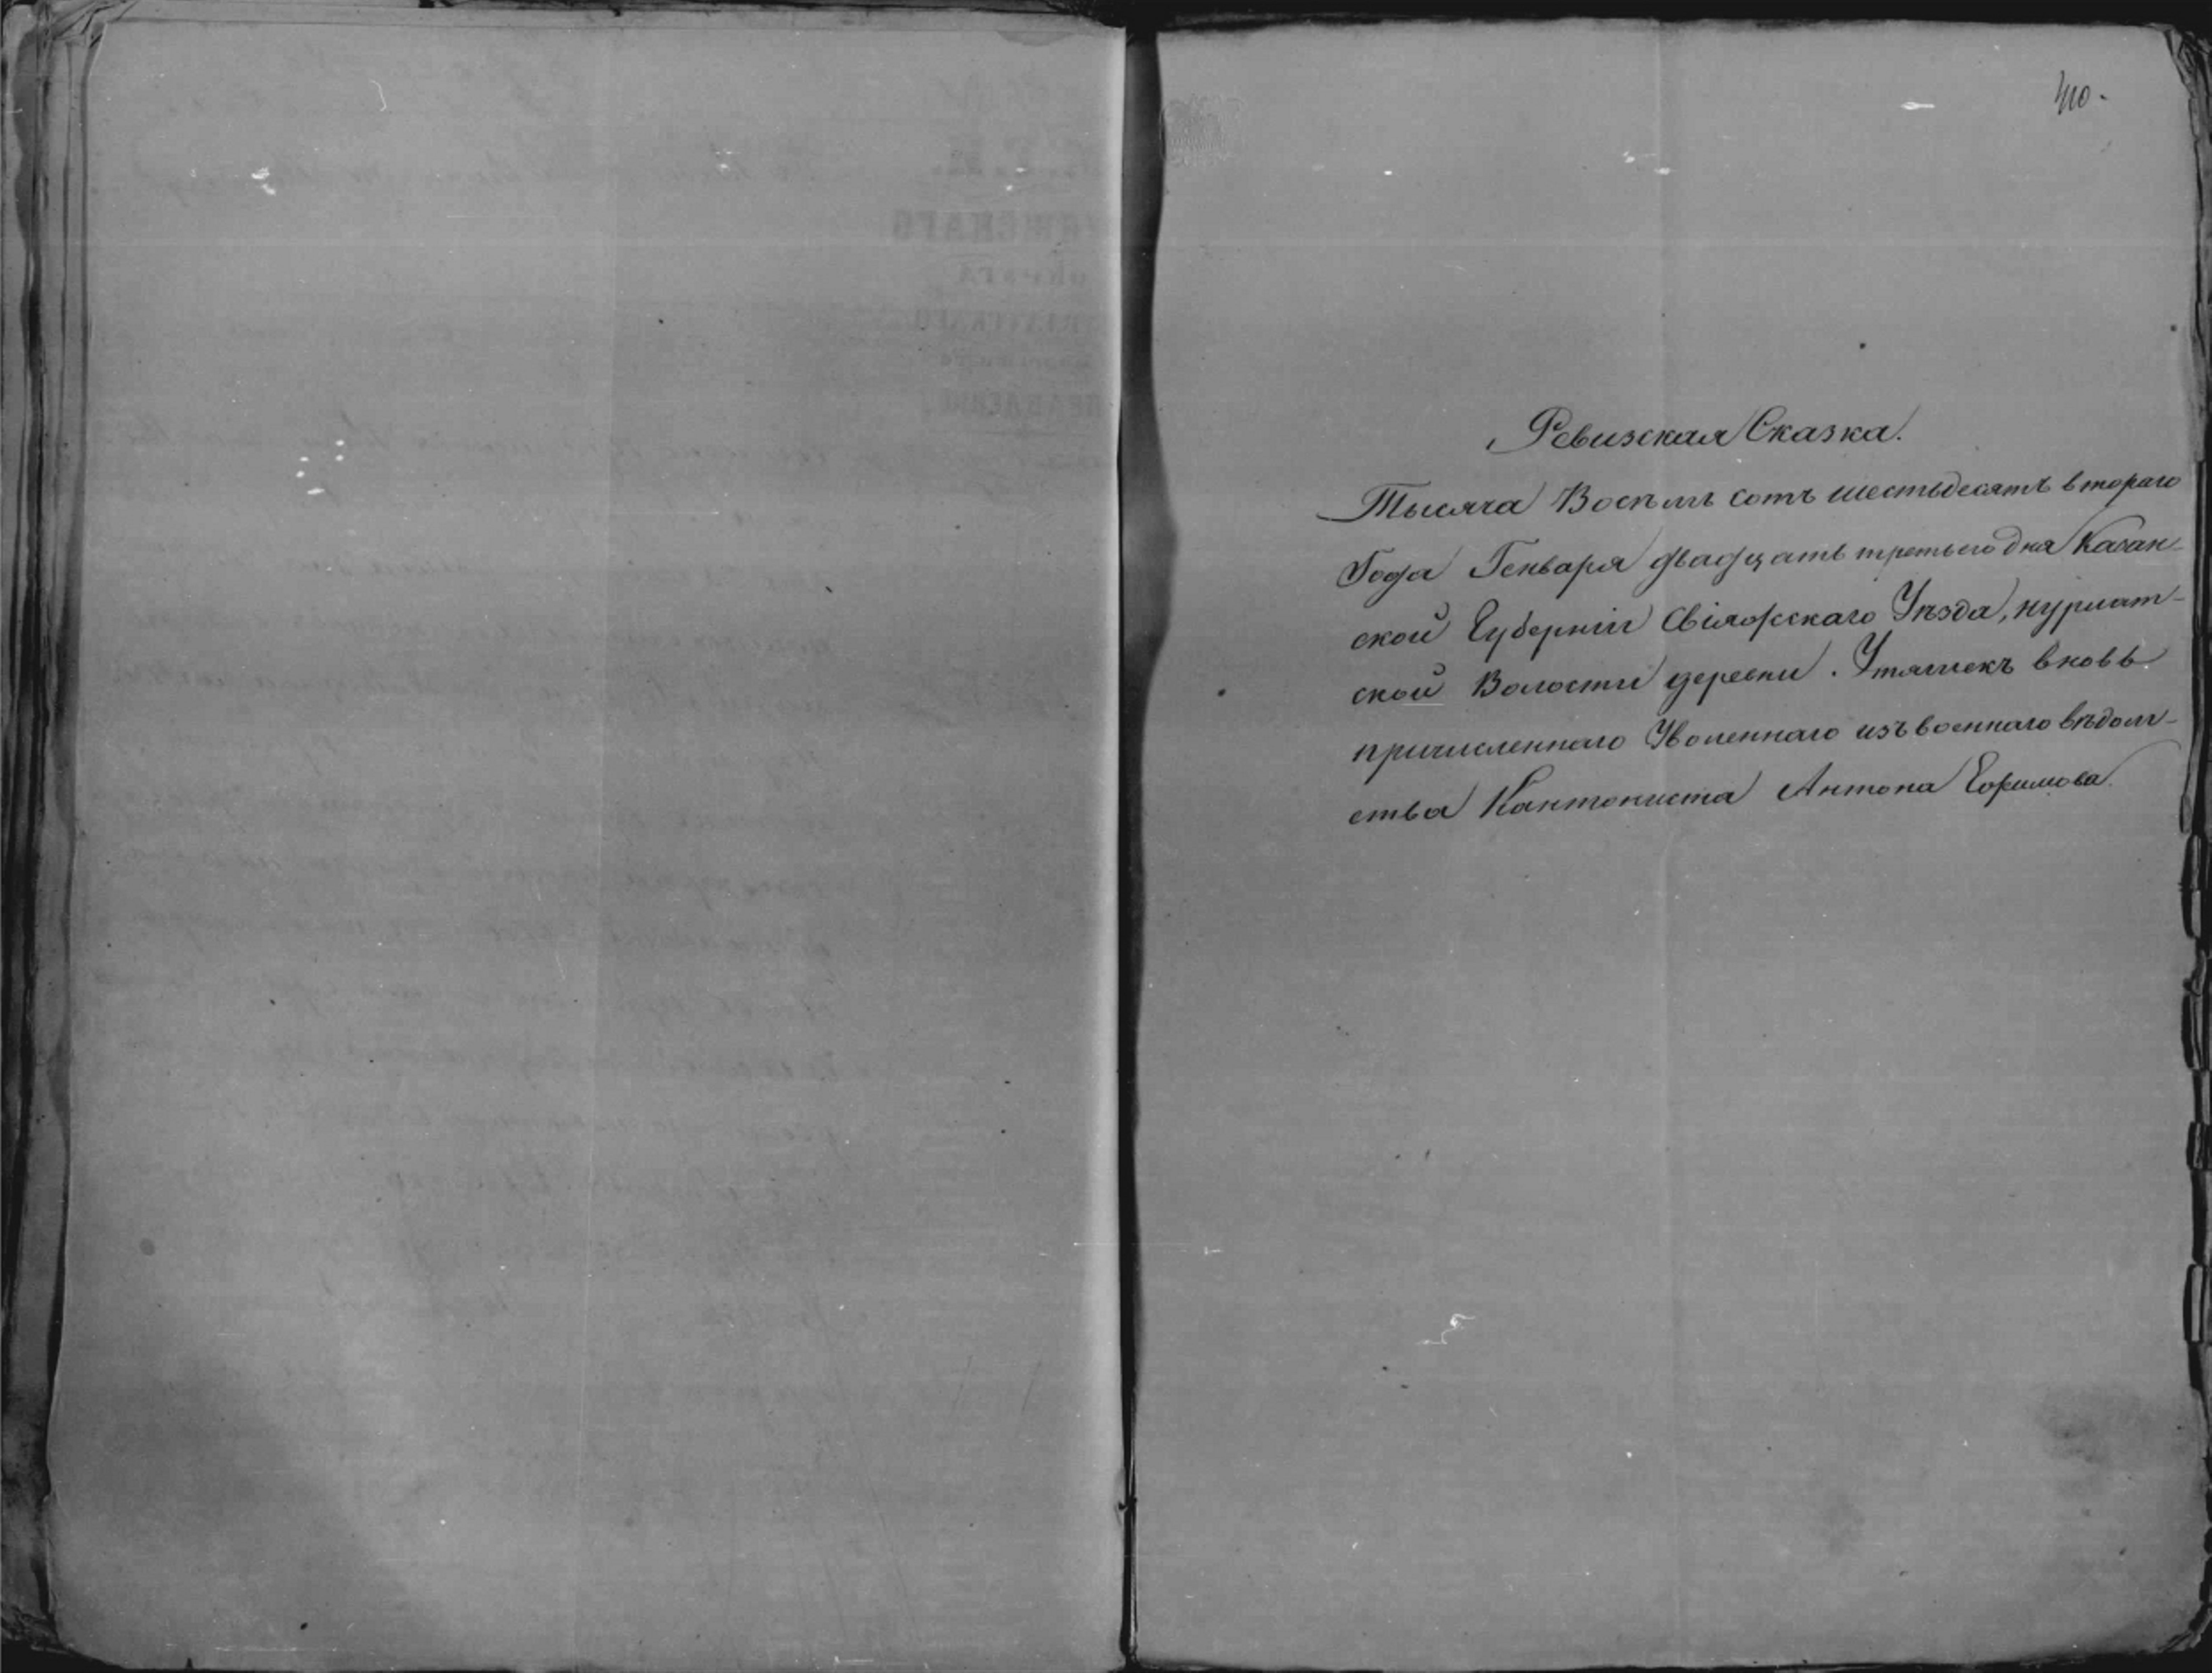 410.
Ревизская Сказка.
Тысяча Восѣмь сотъ шестьдесятъ втораго
Года Генваря двадцать третьего дня Казан-
ской Губерніи Свіяжскаго Уѣзда, нурлат-
ской Волости деревни. Утяшекъ вновь
причисленнаго Уволеннаго изъ военнаго вѣдом-
ства Кантониста Антона Ефимова.